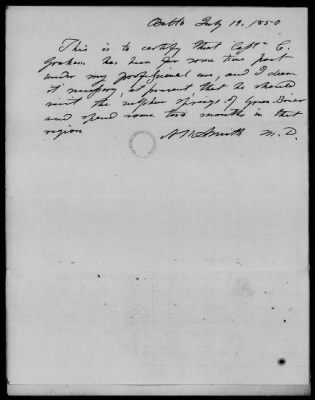 Balto July 19. 1850
This is to certify that Captn C.
Graham has been for some time past
under my professional care, and I deem
it necessary, at present, that he should
visit the sulphur springs of Green Brier
and spend some two months in that
region
N R Smith M.D.